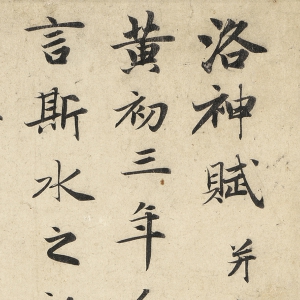 洛神賦并
黄初三年
言斯水之